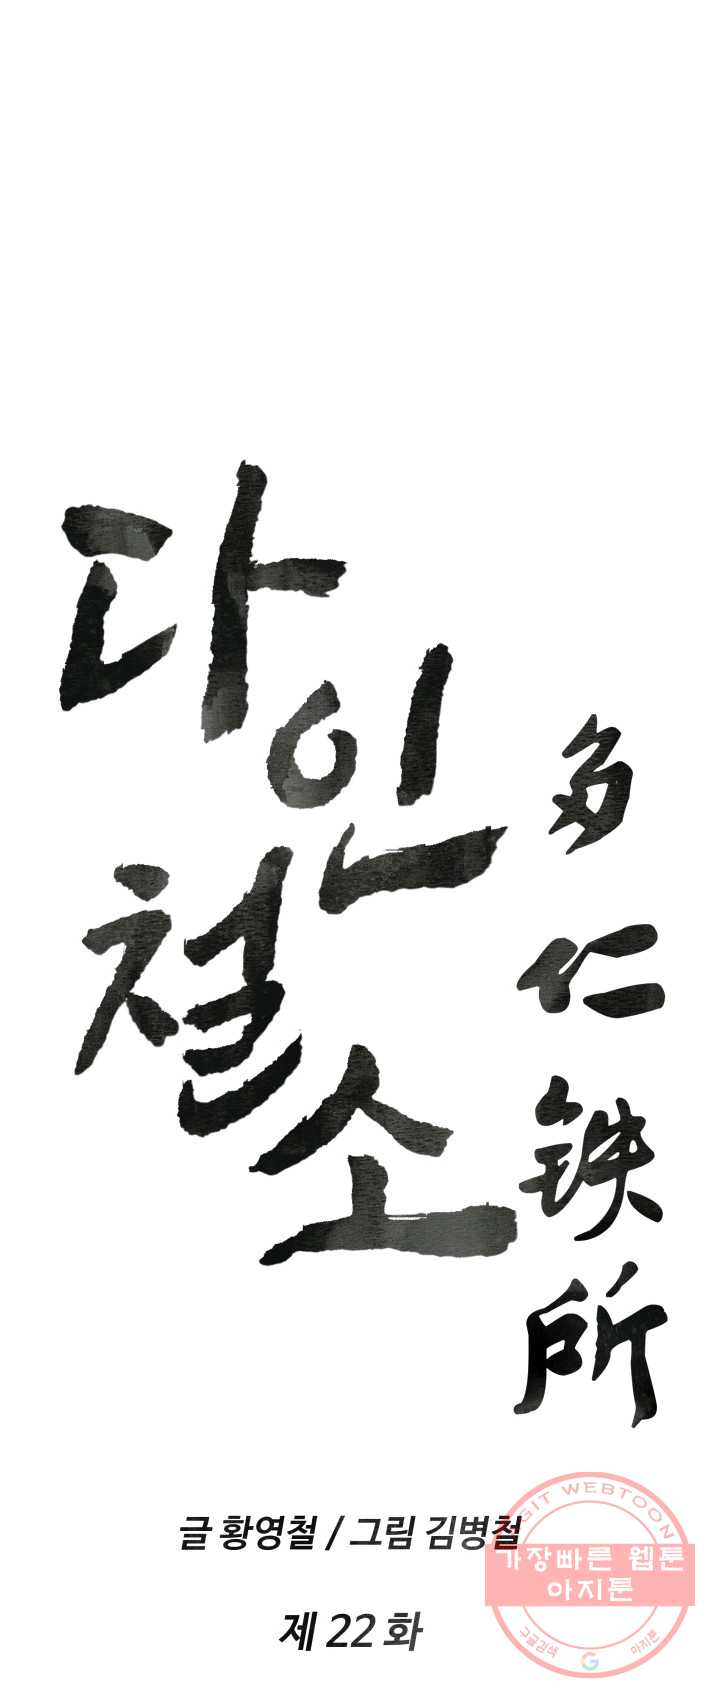 다인
철소
多仁铁所
글 황영철 / 그림 김병철
제 22 화
AGIT WEBTOON
가장빠른 웹툰
아지툰
구글검색 G 아지툰